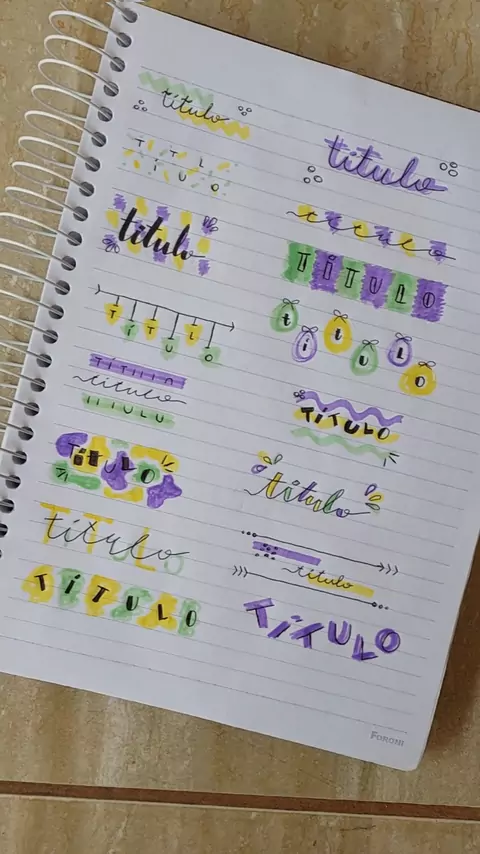 título
título
TÍTULO
título
título
TÍTULO
título
TÍTULO
TÍTULO
título
TÍTULO
TÍTULO
TÍTULO
título
TÍTULO
título
título
TÍTULO
TÍTULO
FORONI